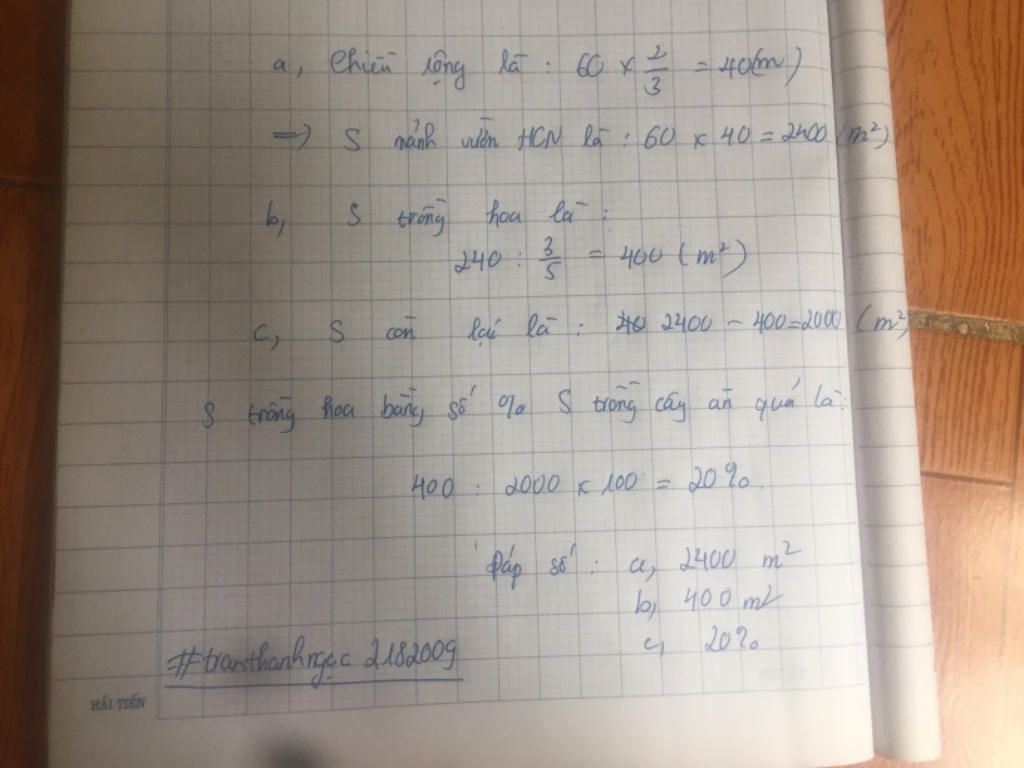 a, Chiều rộng là : 60 × 2/3 = 40(m)
=> S mảnh vườn HCN là : 60 × 40 = 2400 (m²)
b, S trồng hoa là :
240 : 3/5 = 400 (m²)
c, S còn lại là : 2400 - 400 = 2000 (m²)
S trồng hoa bằng số % S trồng cây ăn quả là:
400 : 2000 × 100 = 20%.
Đáp số : a, 2400 m²
b, 400 m²
c, 20%
=#tranthanhngọc 2182009
HẢI TIẾN